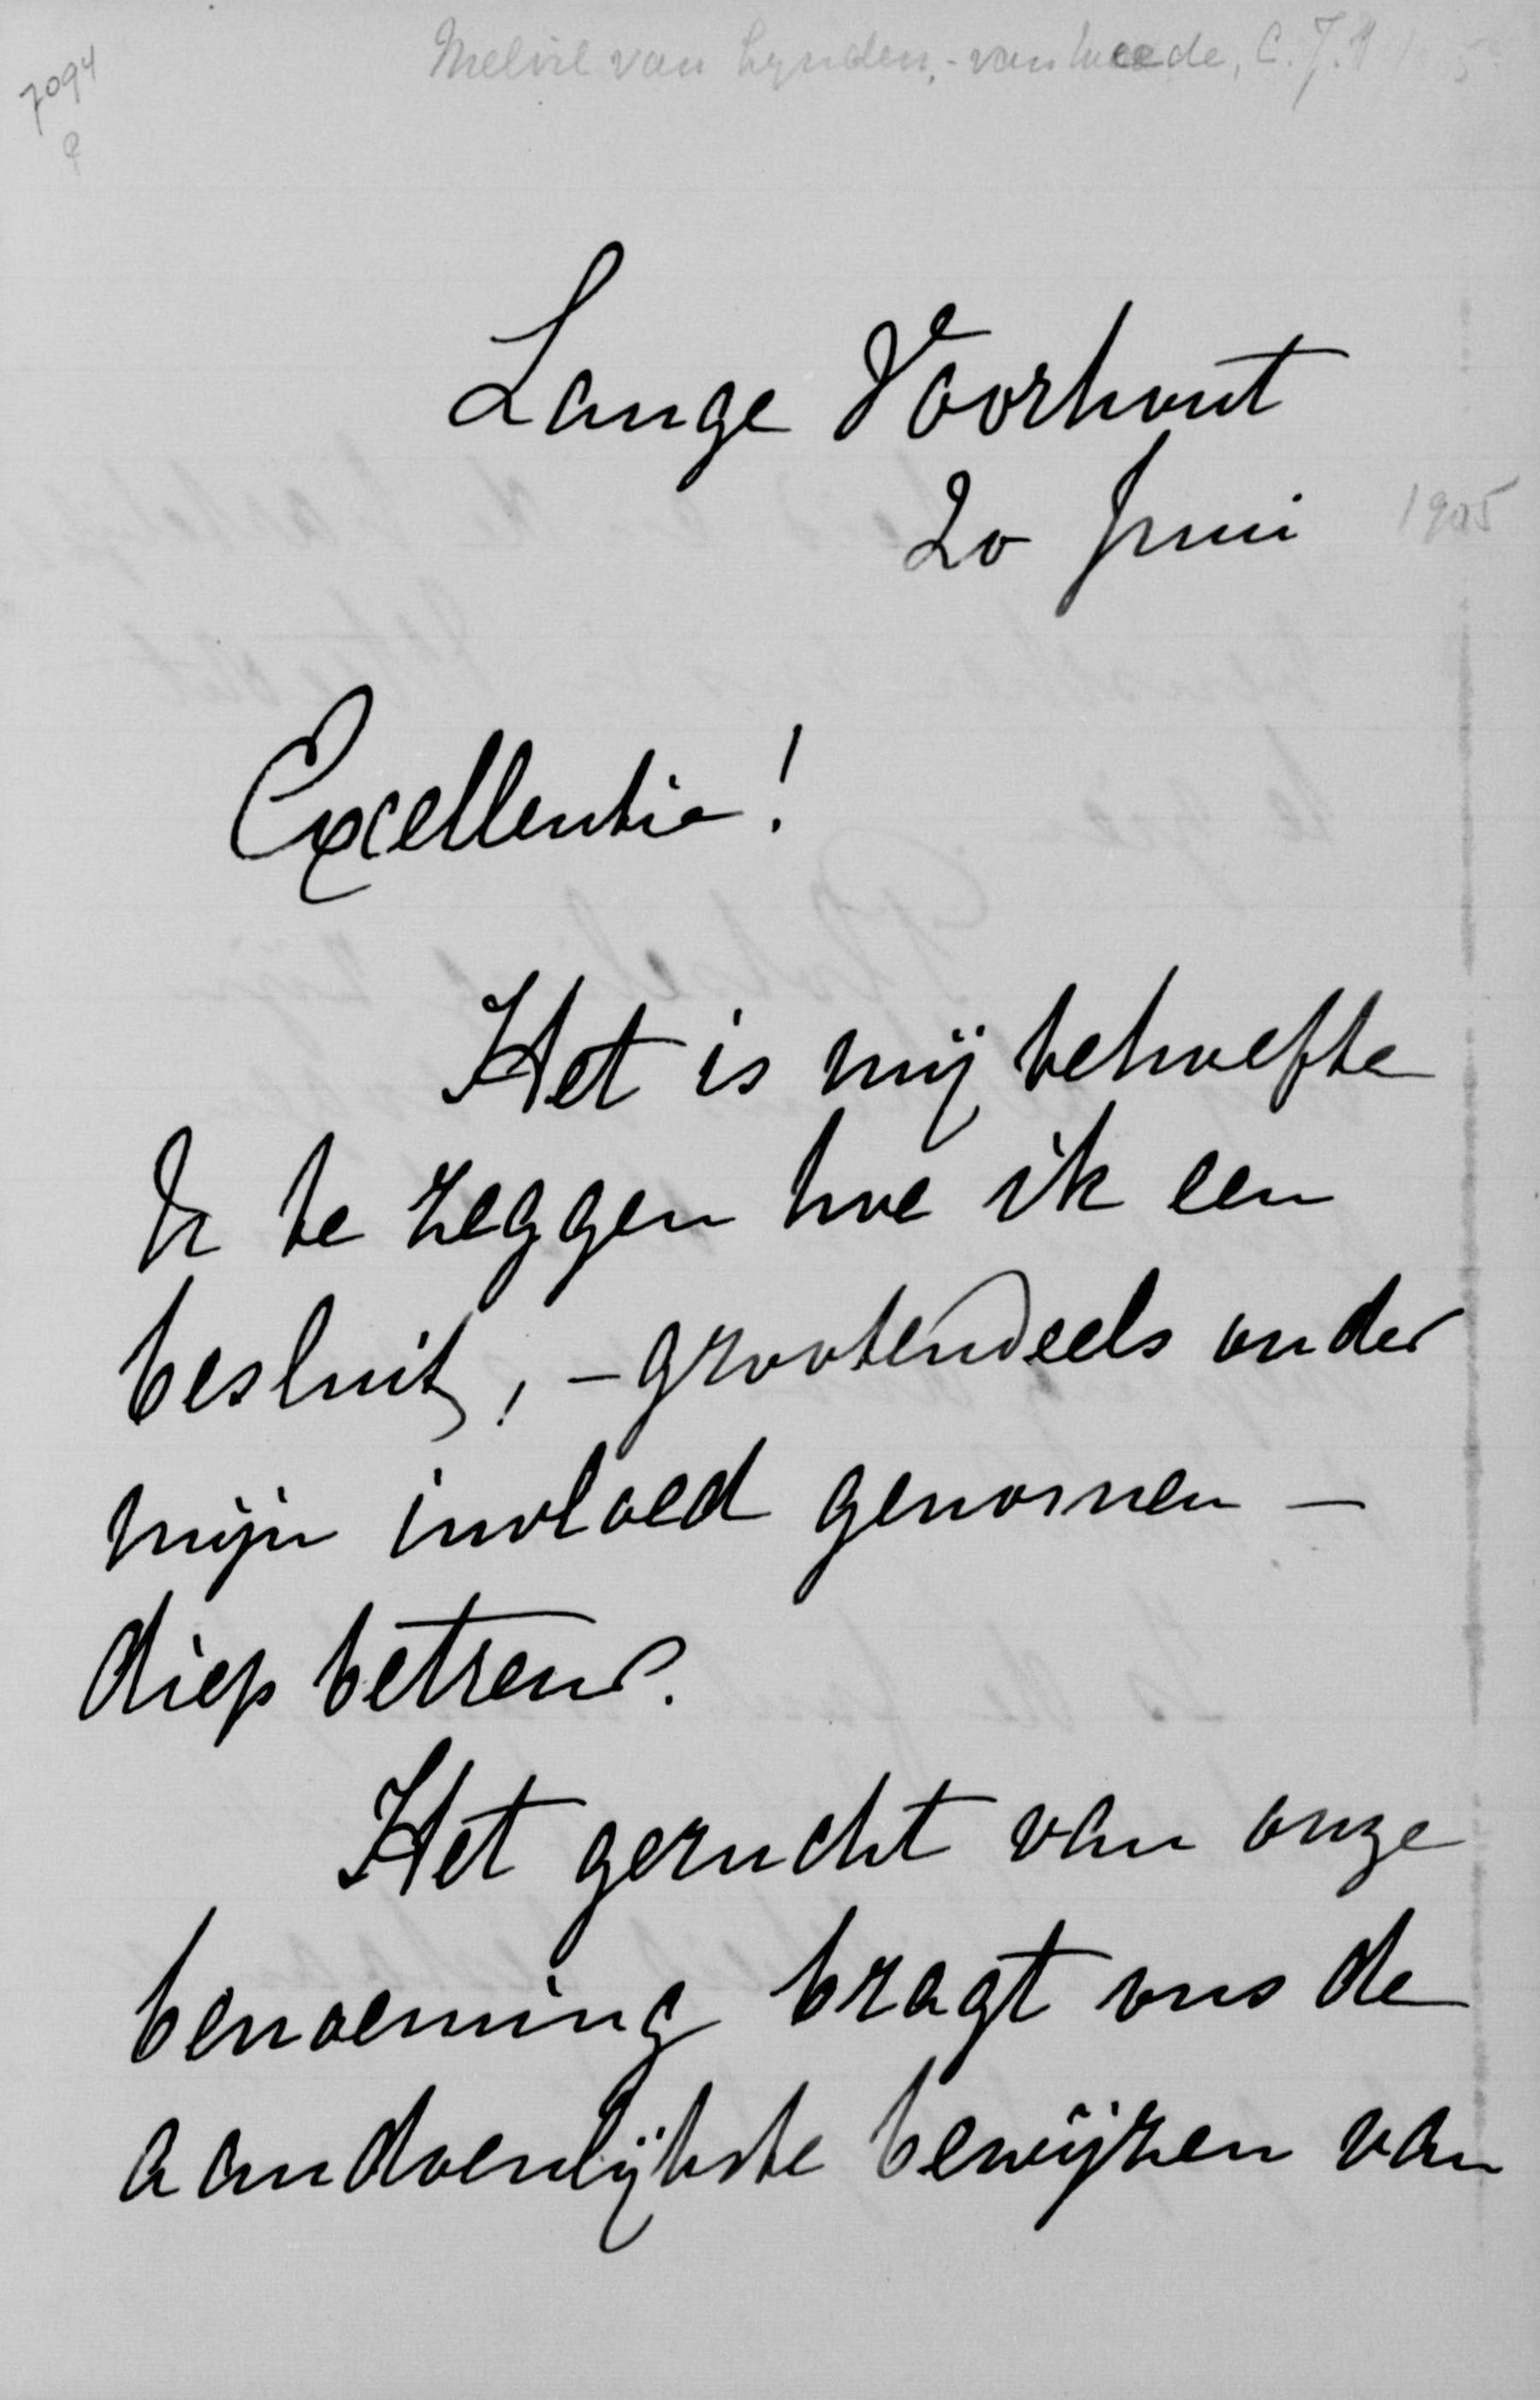 7094
Melvil van Lynden, - van Weede, C. J. A
Lange Voorhout
20 Juni 1905
Excellentie!
Het is mij behoefte
U te zeggen hoe ik een
besluit, - grootendeels onder
mijn invloed genomen -
diep betreur.
Het gerucht van onze
benoeming bragt ons de
aandoenlijkste bewijzen van